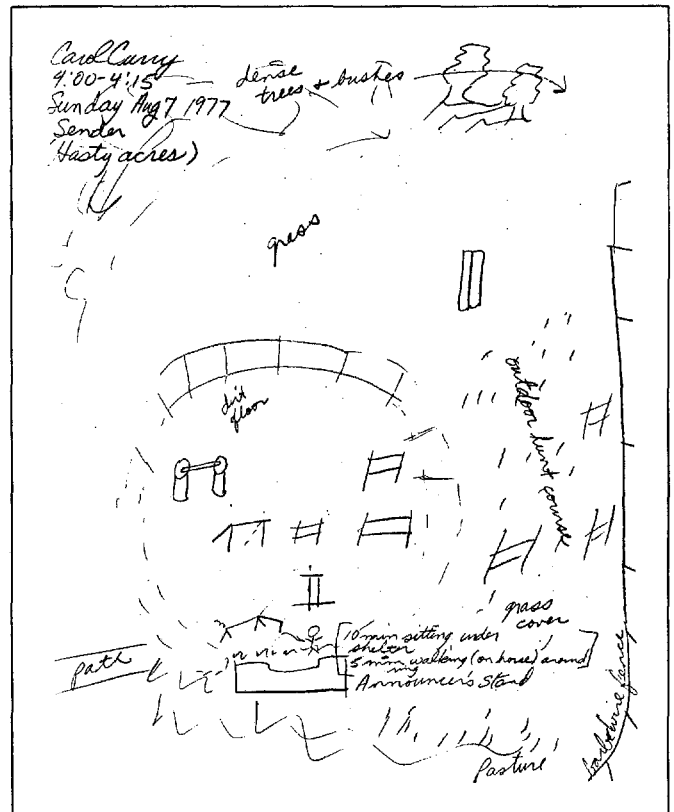 Carol Curry
4:00-4:15
Sunday Aug 7 1977
Sender
(Hasty acres)
dense
trees & bushes
grass
dirt
floor
outdoor hunt course
grass
cover
10 min sitting under
shelter
5 min walking (on horse) around
ring
Announcer's Stand
path
barbwire fence
Pasture